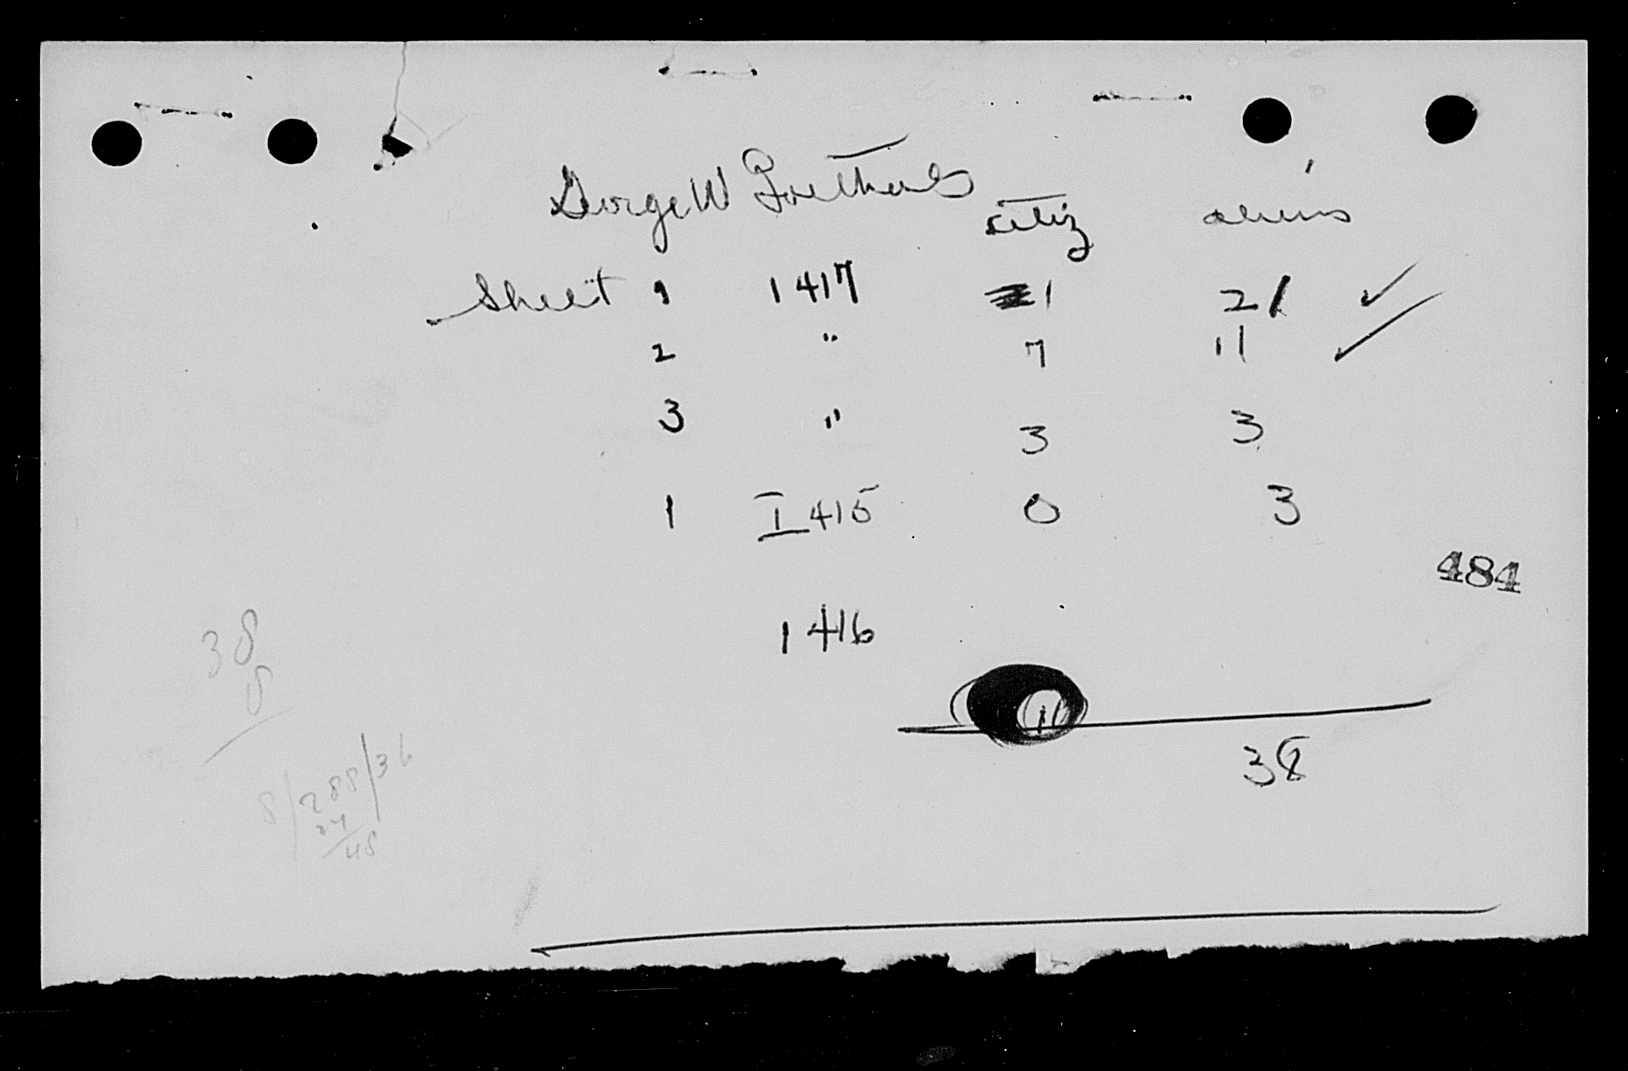 George W Goethals
citiz aliens
Sheet 1 1417 1 21 ✓
2 " 7 11 ✓
3 " 3 3
1 I 415 0 3
484
1416
11
38
38
8
8/288/36
24
48